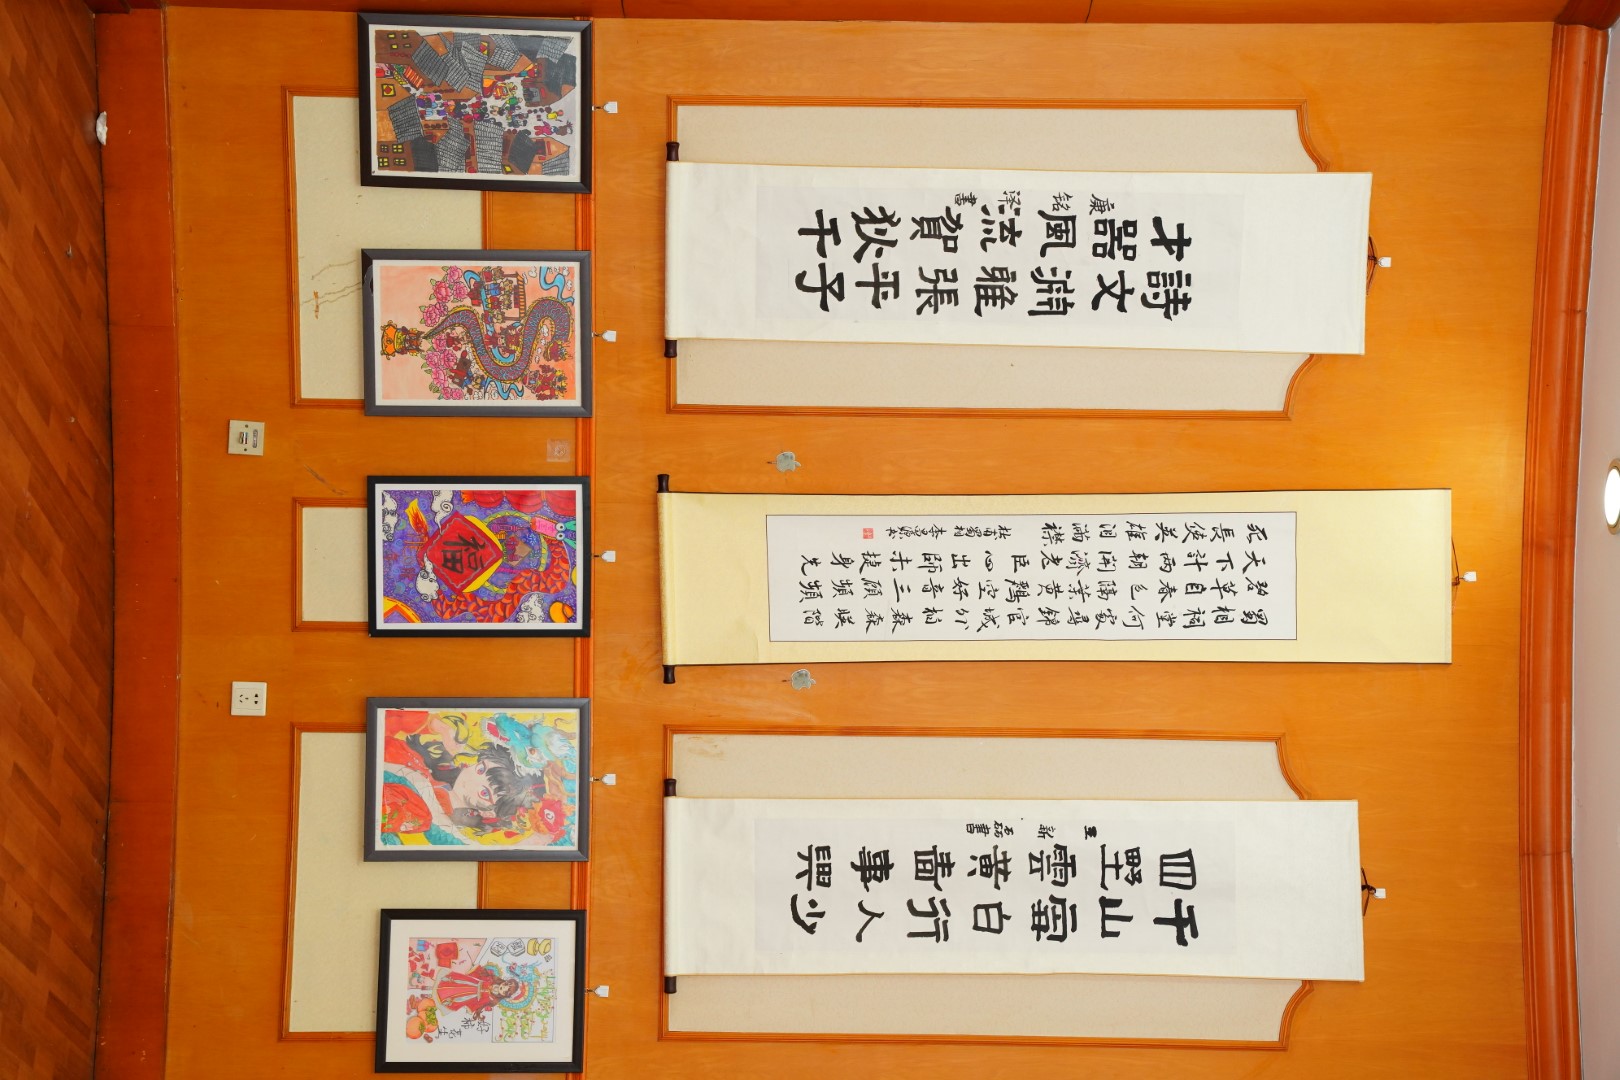 詩文淵雅張平子
才器風流賀狄千
康铭泽書
蜀相祠堂何處尋錦官城外柏森森映階
碧草自春色隔葉黄鸝空好音三顧頻
天下計兩朝開濟老臣心出師未捷身先
死長使英雄淚滿襟
杜甫蜀相
千山雪白行人少
四野雲黄嗇事興
福
好柿花生